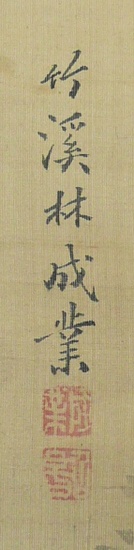 竹溪林成業